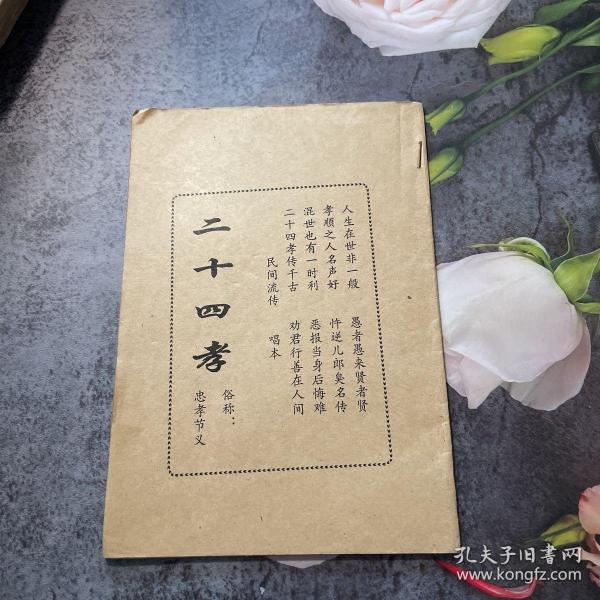 人生在世非一般 愚者愚来贤者贤
孝顺之人名声好 忤逆儿郎臭名传
混世也有一时利 恶报当身后悔难
二十四孝传千古 劝君行善在人间
民间流传 唱本
二十四孝
俗称：
忠孝节义
孔夫子旧书网
www.kongfz.com